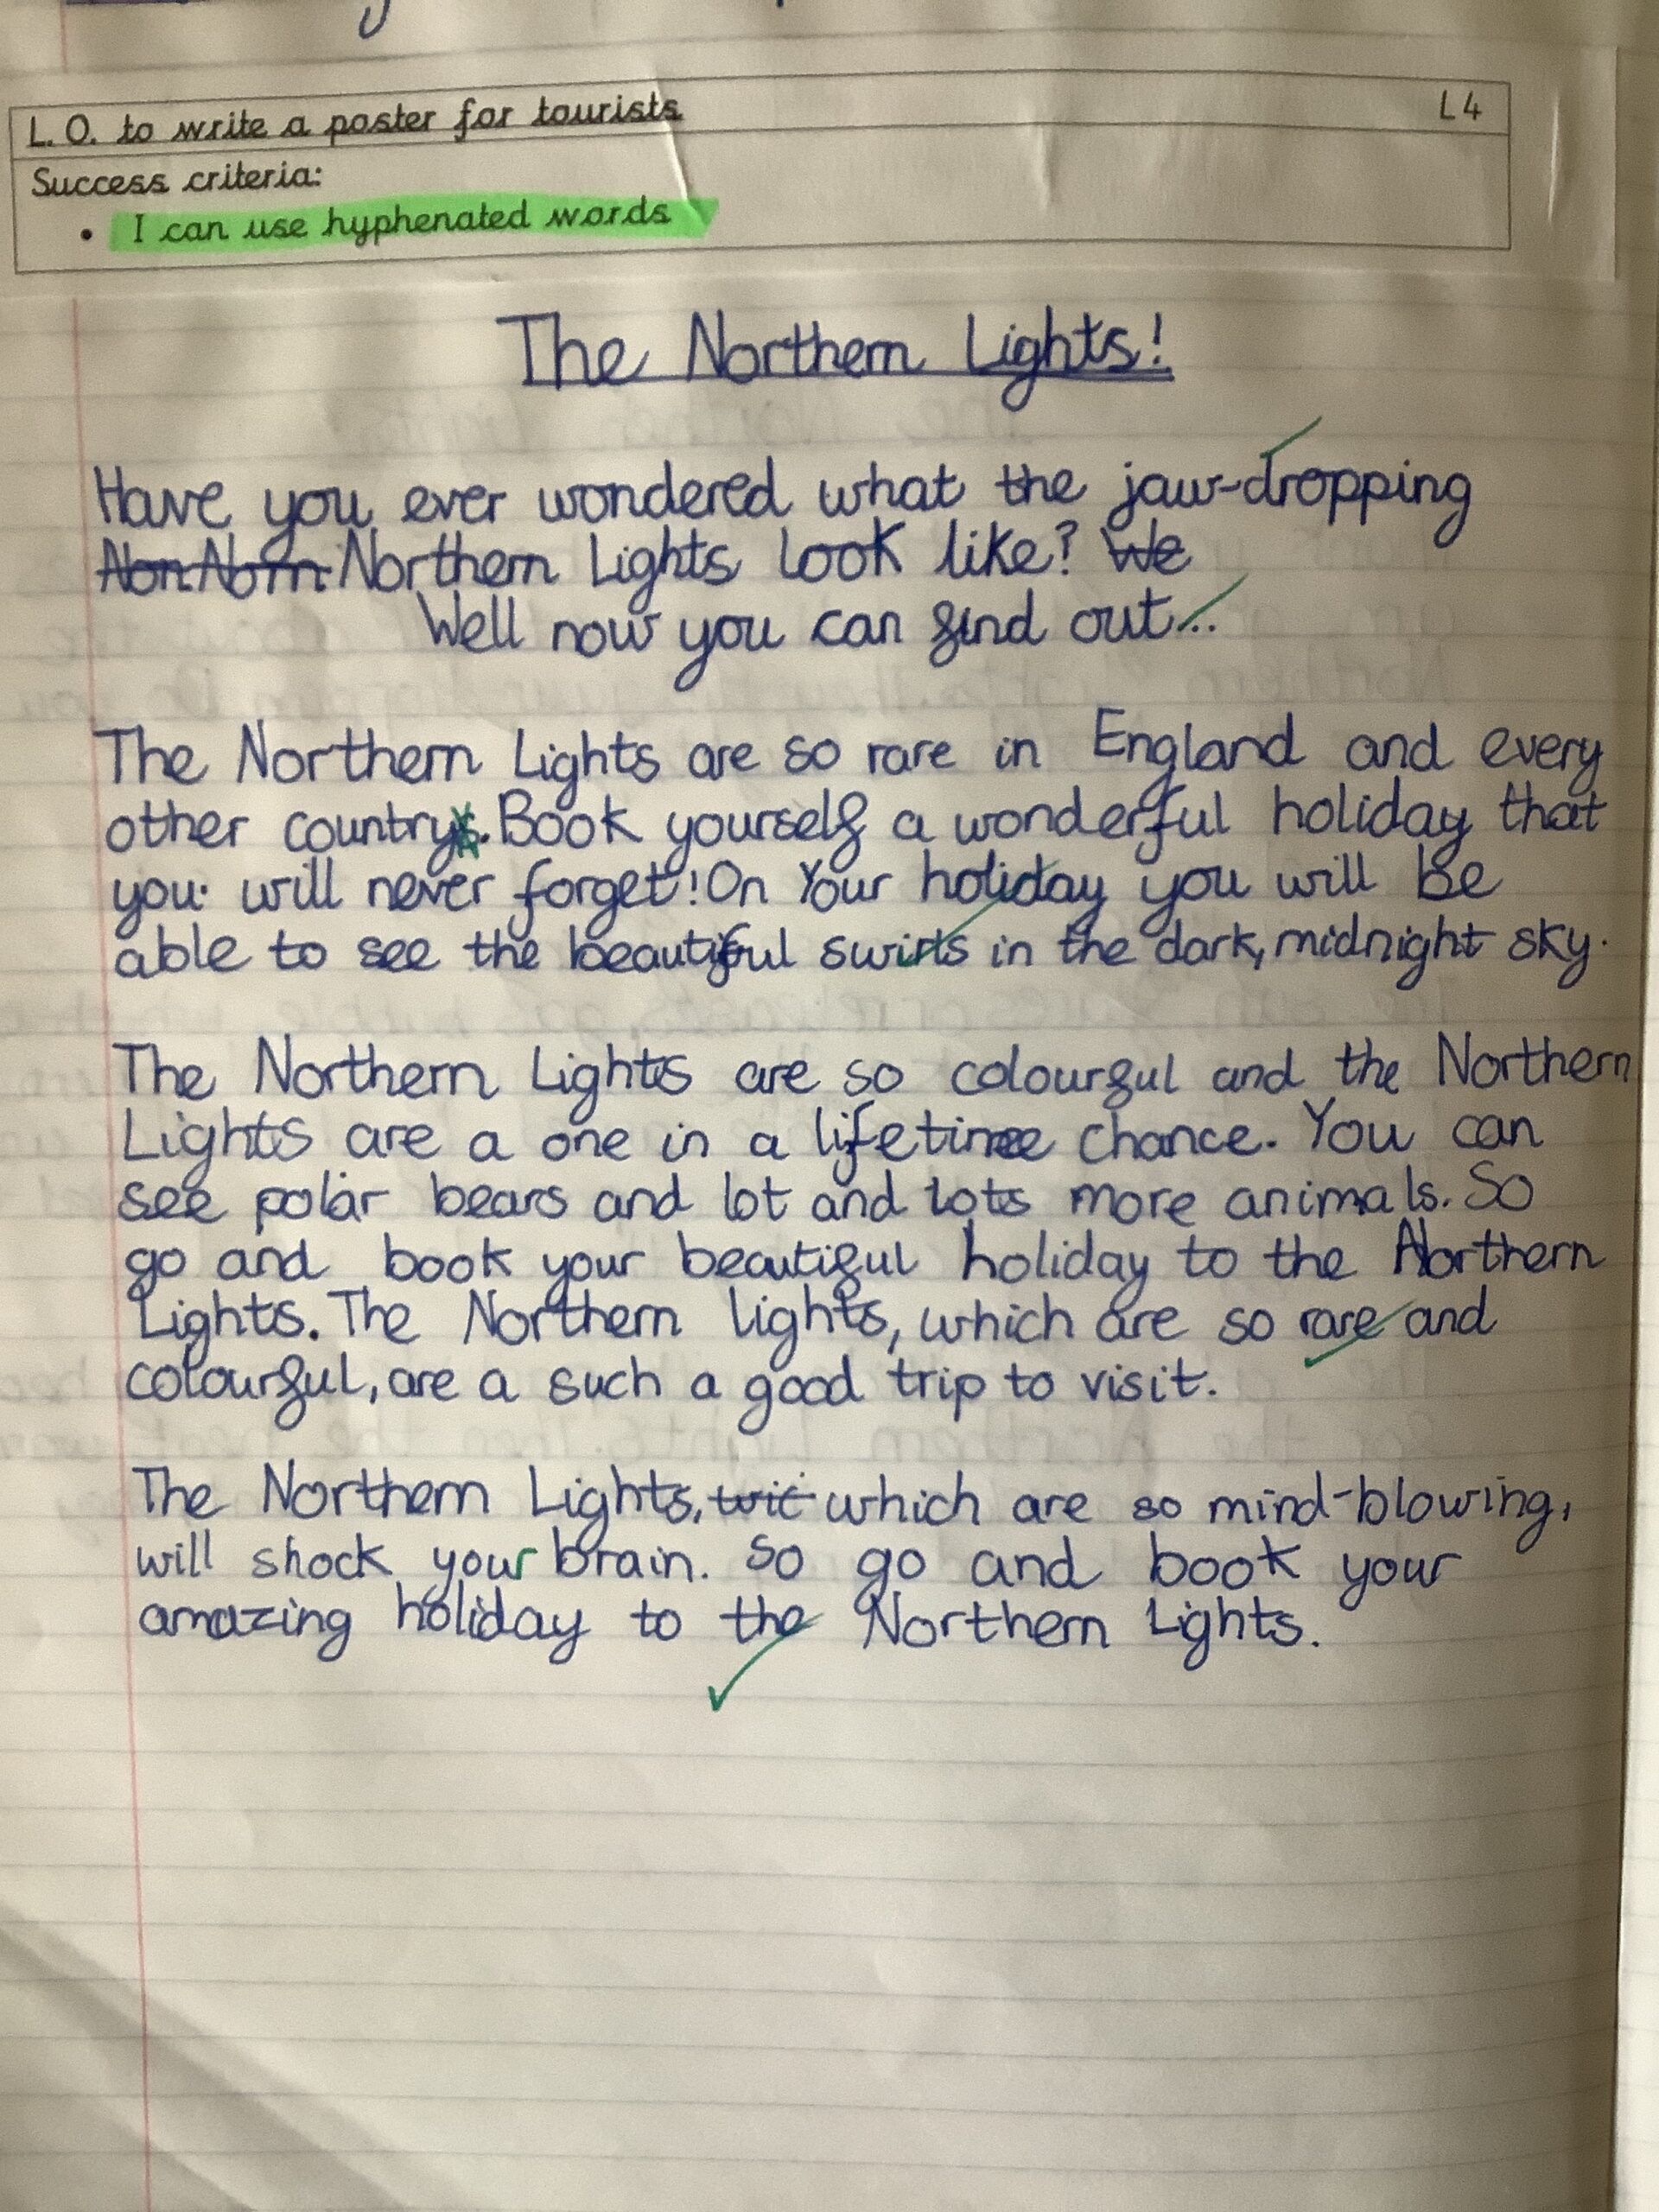 L.O. to write a poster for tourists L4
Success criteria:
• I can use hyphenated words
The Northern Lights!
Have you ever wondered what the jaw-dropping
Non Norn Northern Lights look like? We
Well now you can find out...
The Northern Lights are so rare in England and every
other country. Book yourself a wonderful holiday that
you will never forget! On Your holiday you will be
able to see the beautiful swirls in the dark, midnight sky.
The Northern Lights are so colourful and the Northern
Lights are a one in a lifetime chance. You can
see polar bears and lot and lots more animals. So
go and book your beautiful holiday to the Northern
Lights. The Northern lights, which are so rare and
colourful, are a such a good trip to visit.
The Northern Lights, wic which are so mind-blowing,
will shock your brain. So go and book your
amazing holiday to the Northern Lights.